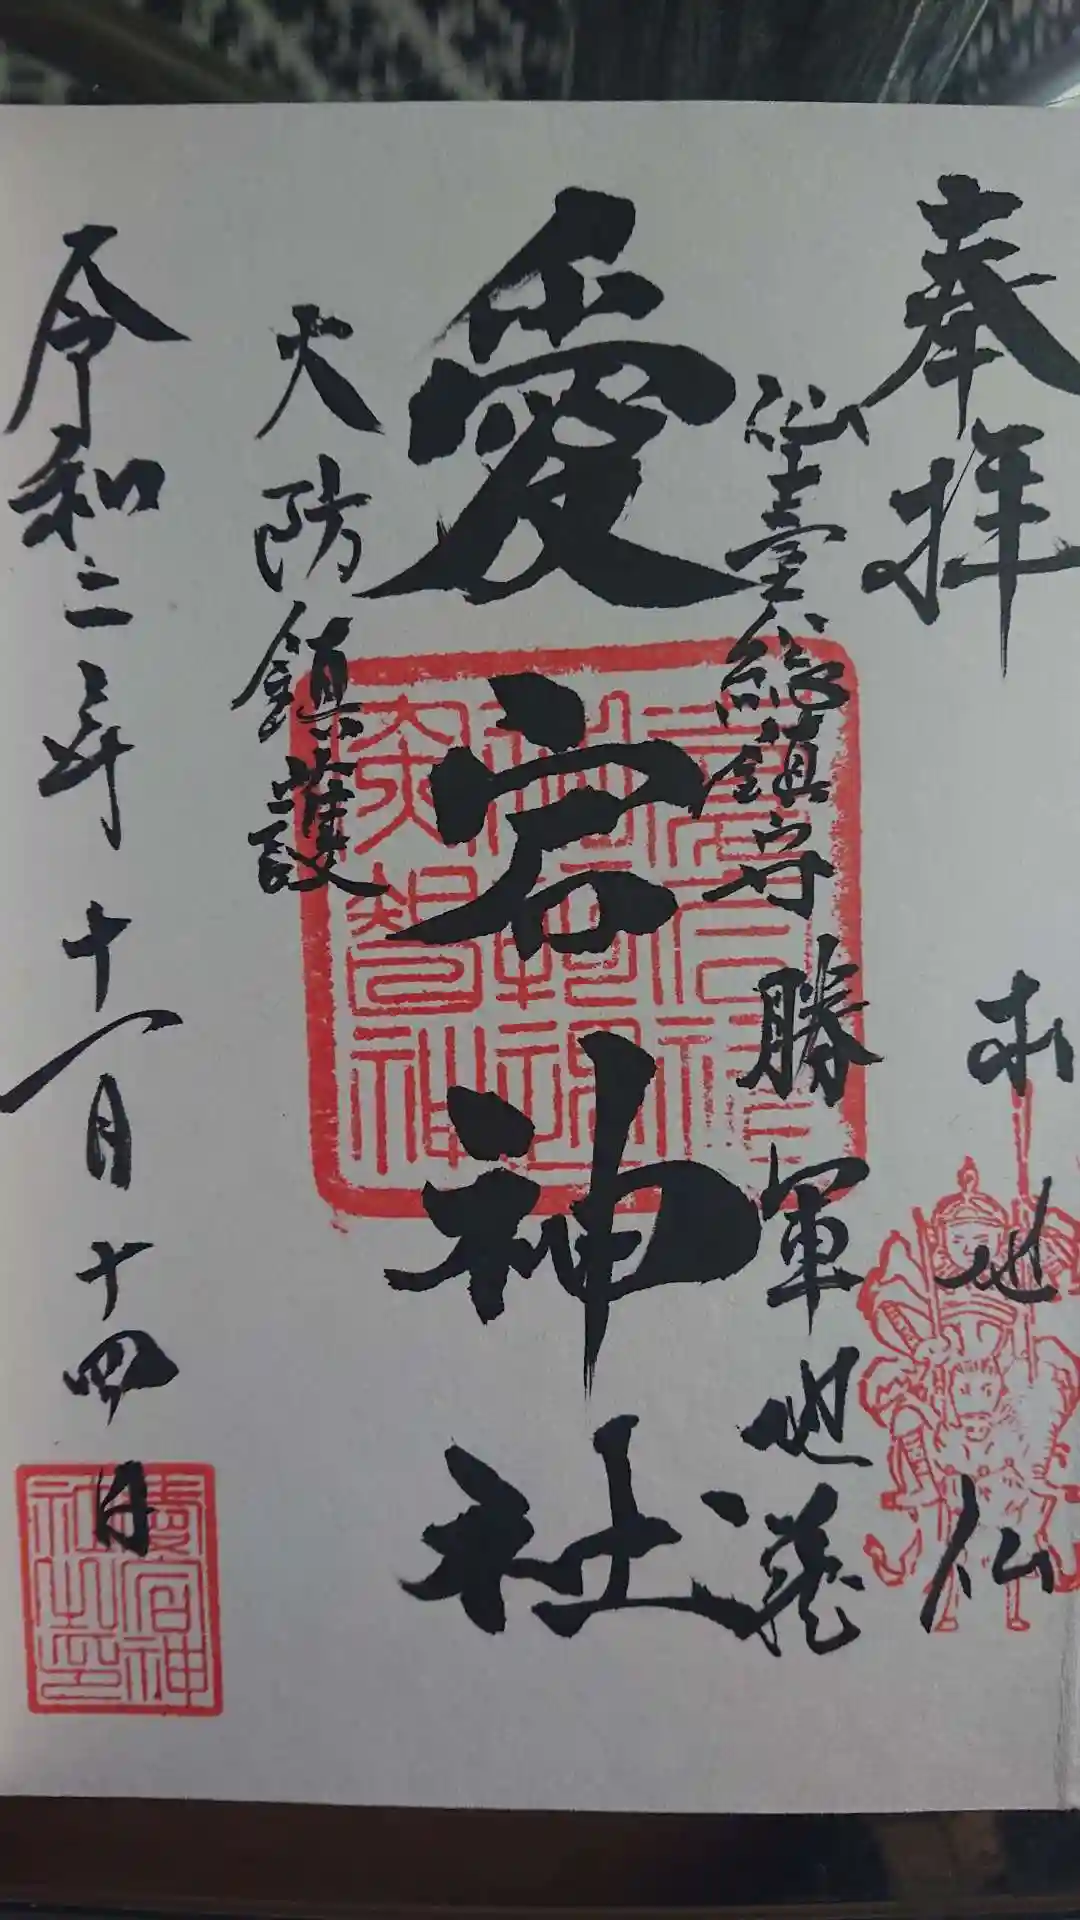 奉拝
本地仏
仙臺総鎮守 勝軍地蔵
愛宕神社
火防鎮護
令和二年十一月十四日
愛宕神社之印